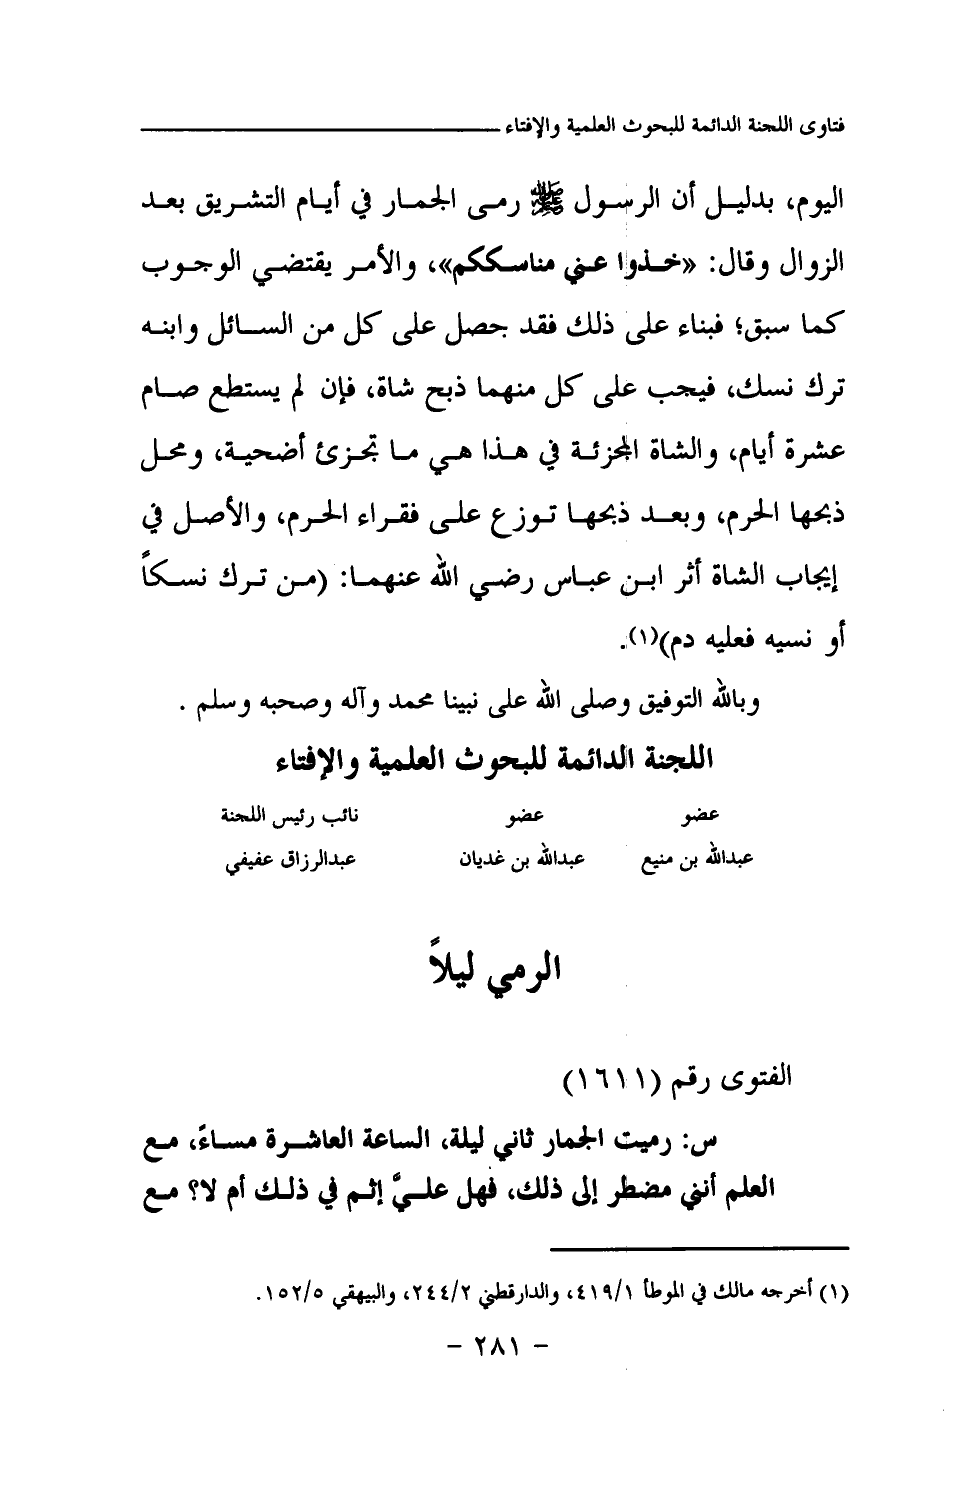 فتاوى اللجنة الدائمة للبحوث العلمية والإفتاء
اليوم، بدليل أن الرسول ﷺ رمى الجمار في أيام التشريق بعد
الزوال وقال: «خذوا عني مناسككم»، والأمر يقتضي الوجوب
كما سبق؛ فبناء على ذلك فقد حصل على كل من السائل وابنه
ترك نسك، فيجب على كل منهما ذبح شاة، فإن لم يستطع صام
عشرة أيام، والشاة المجزئة في هذا هي ما تجزئ أضحية، ومحل
ذبحها الحرم، وبعد ذبحها توزع على فقراء الحرم، والأصل في
إيجاب الشاة أثر ابن عباس رضي الله عنهما: (من ترك نسكاً
أو نسيه فعليه دم)(١).
وبالله التوفيق وصلى الله على نبينا محمد وآله وصحبه وسلم .
اللجنة الدائمة للبحوث العلمية والإفتاء
عضو عضو نائب رئيس اللجنة
عبدالله بن منيع عبدالله بن غديان عبدالرزاق عفيفي
الرمي ليلاً
الفتوى رقم (١٦١١)
س: رميت الجمار ثاني ليلة، الساعة العاشرة مساءً، مع
العلم أنني مضطر إلى ذلك، فهل عليَّ إثم في ذلك أم لا؟ مع
(١) أخرجه مالك في الموطأ ٤١٩/١، والدارقطني ٢٤٤/٢، والبيهقي ١٥٢/٥.
- ٢٨١ -